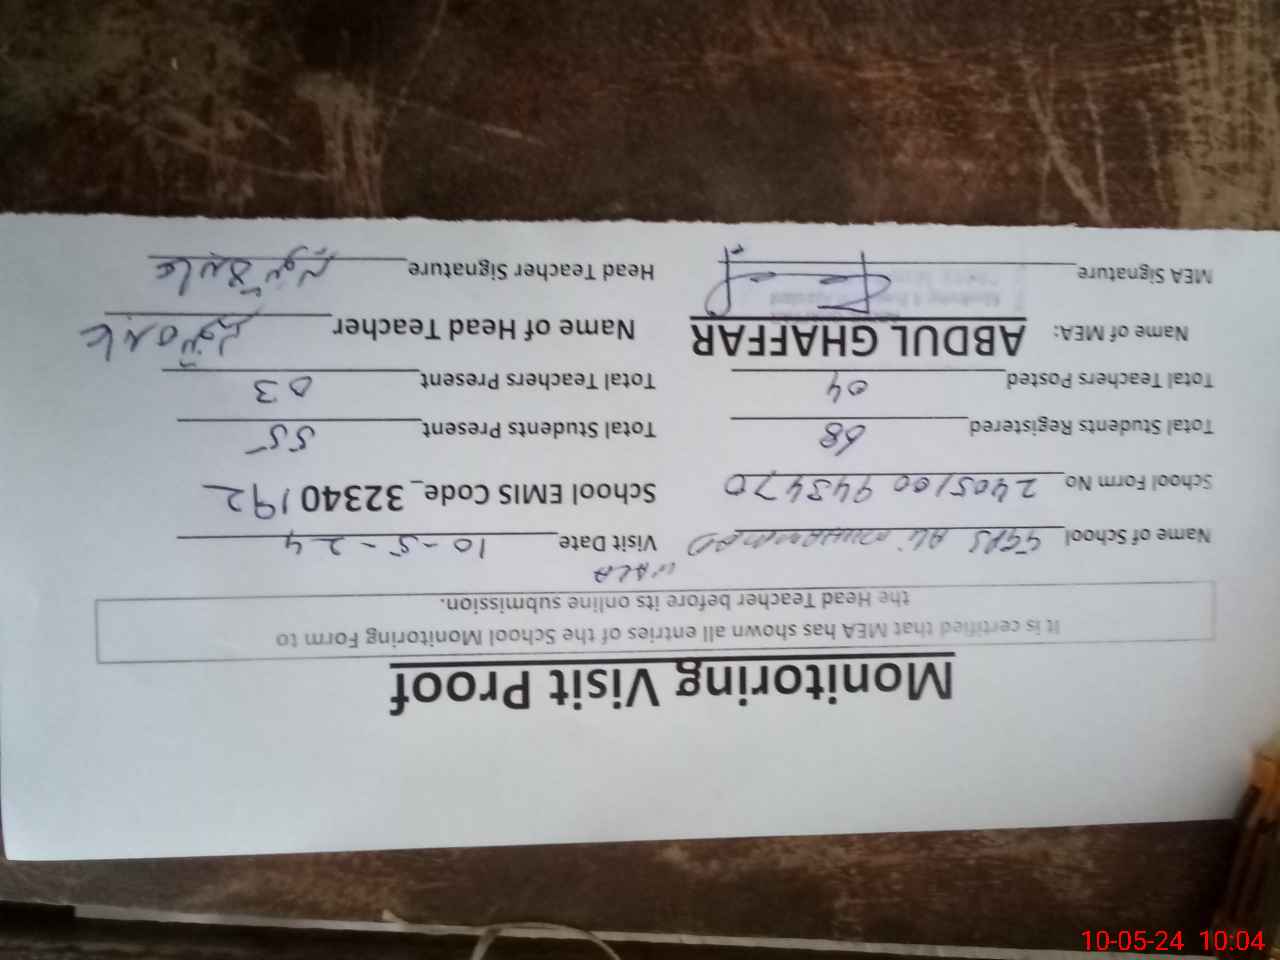 Monitoring Visit Proof
It is certified that MEA has shown all entries of the School Monitoring Form to
the Head Teacher before its online submission.
Name of School GGPS ALI MUHAMMAD WALA Visit Date 10-5-24
School Form No 2405100943470 School EMIS Code_ 32340192
Total Students Registered 68 Total Students Present 55
Total Teachers Posted 04 Total Teachers Present 03
Name of MEA: ABDUL GHAFFAR Name of Head Teacher
MEA Signature Head Teacher Signature
10-05-24 10:04